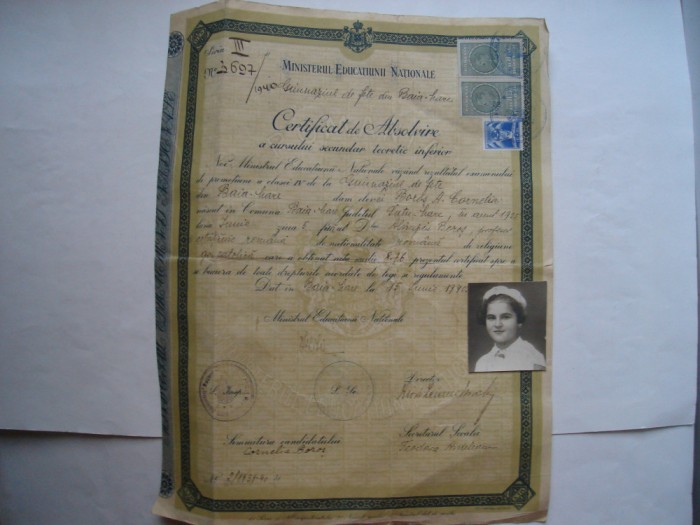 Seria III
No 3697/1940
MINISTERUL EDUCAȚIUNII NAȚIONALE
Gimnaziul de fete din Baia-Mare
Certificat de Absolvire
a cursului secundar teoretic inferior
Noi Ministrul Educațiunii Naționale văzând rezultatul examenului
de promoțiune a clasei IV de la Gimnaziul de fete
din Baia-Mare dăm elevei Boroș A. Cornelia
născut în Comuna Baia-Mare Județul Satu-Mare, în anul
luna Iunie ziua părinți D-l Boroș profesor
cetățenie română de naționalitate română de religiune
gr. catolică care a obținut nota medie prezentul certificat spre a
se bucura de toate drepturile acordate de legi și regulamente.
Dat în Baia-Mare la 15 Iunie 1940
Ministrul Educațiunii Naționale
Director
Semnătura candidatului
Cornelia Boroș
Secretarul Școalei